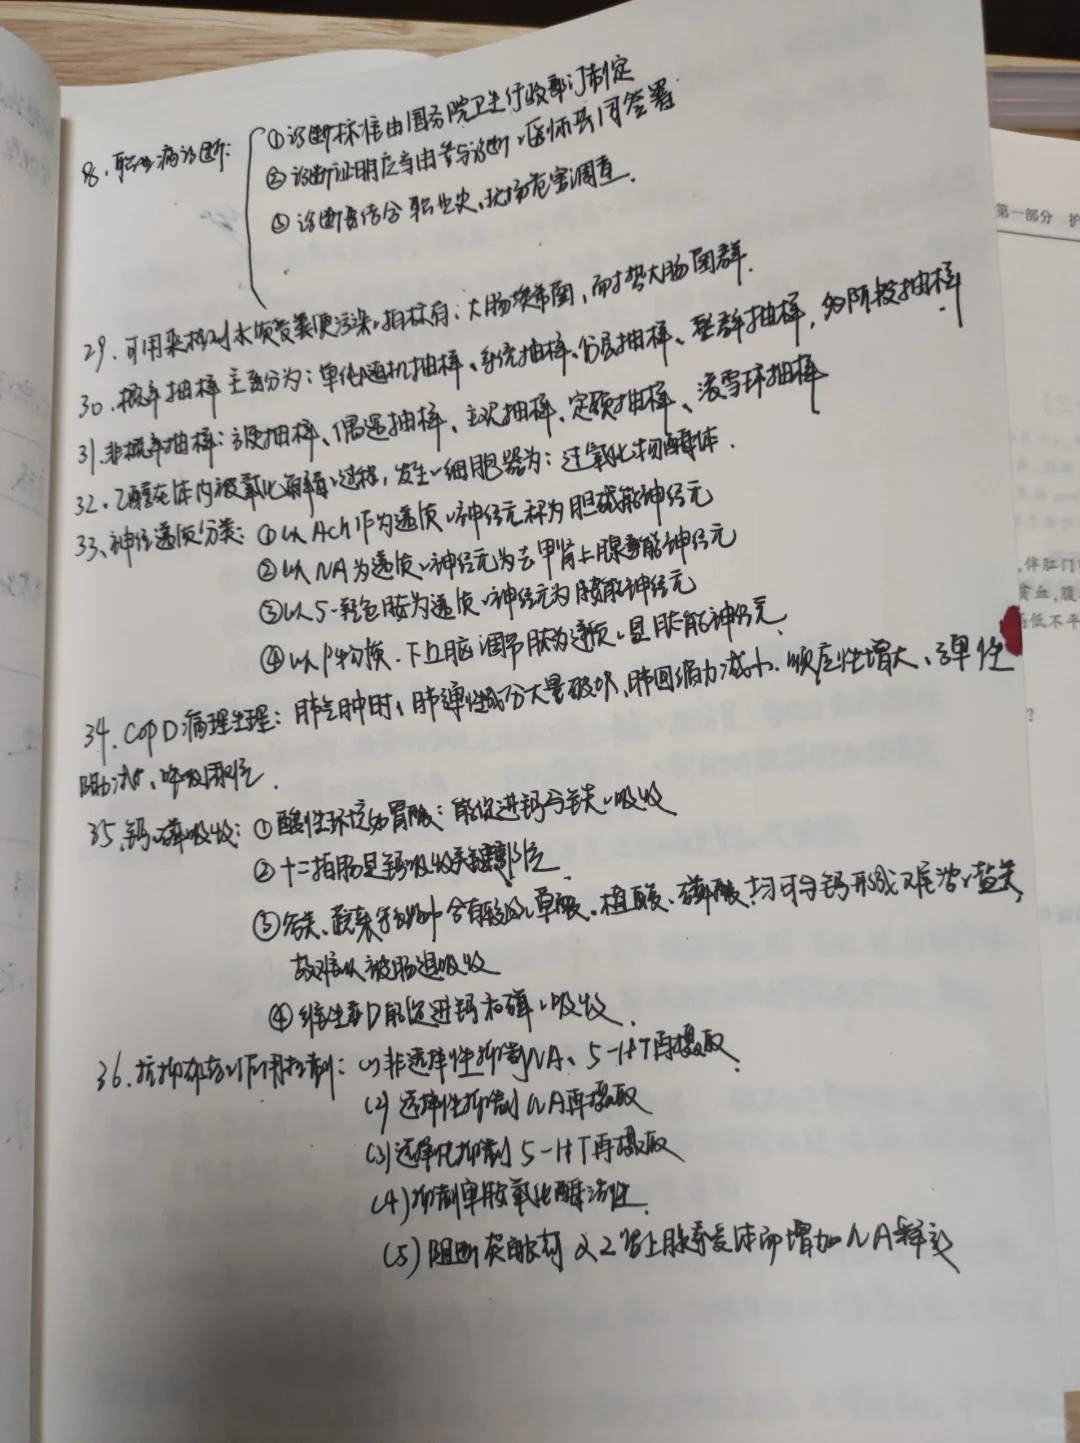 8、职业病诊断：
①诊断标准由国务院卫生行政部门制定
②诊断证明应当由参与诊断、医师共同签署
③诊断需结合职业史、现场危害调查.
29、可用来检测水质受粪便污染、指标有：大肠埃希菌，耐热大肠菌群.
30、概率抽样主要分为：单纯随机抽样、系统抽样、分层抽样、整群抽样，多阶段抽样
31.非概率抽样：方便抽样、偶遇抽样、主观抽样、定额抽样、滚雪球抽样
32、乙醇在体内被氧化解毒、过程，发生、细胞器为：过氧化物酶体.
33、神经递质分类：①以Ach作为递质、神经元称为胆碱能神经元
②以NA为递质、神经元为去甲肾上腺素能神经元
③以5-羟色胺为递质、神经元为胺能神经元
④以P物质、下丘脑调节肽为递质、是肽能神经元.
34、COPD病理生理：肺气肿时，肺弹性成分大量破坏，肺回缩力减小、顺应性增大、弹性
阻力减、呼吸困难.
35、钙、磷吸收：①酸性环境如胃酸：能促进钙与铁、吸收
②十二指肠是钙吸收关键部位.
③谷类、蔬菜等食物中含有较多、草酸、植酸、磷酸，均可与钙形成难溶、盐类，
故难以被肠道吸收
④维生素D能促进钙和磷、吸收.
36、抗抑郁药、作用机制：(1)非选择性抑制NA、5-HT再摄取.
(2)选择性抑制NA再摄取
(3)选择性抑制5-HT再摄取
(4)抑制单胺氧化酶活性.
(5)阻断突触前α2肾上腺素受体而增加NA释放
第一部分 护
，伴肛门
贫血，腹
高低不平
？